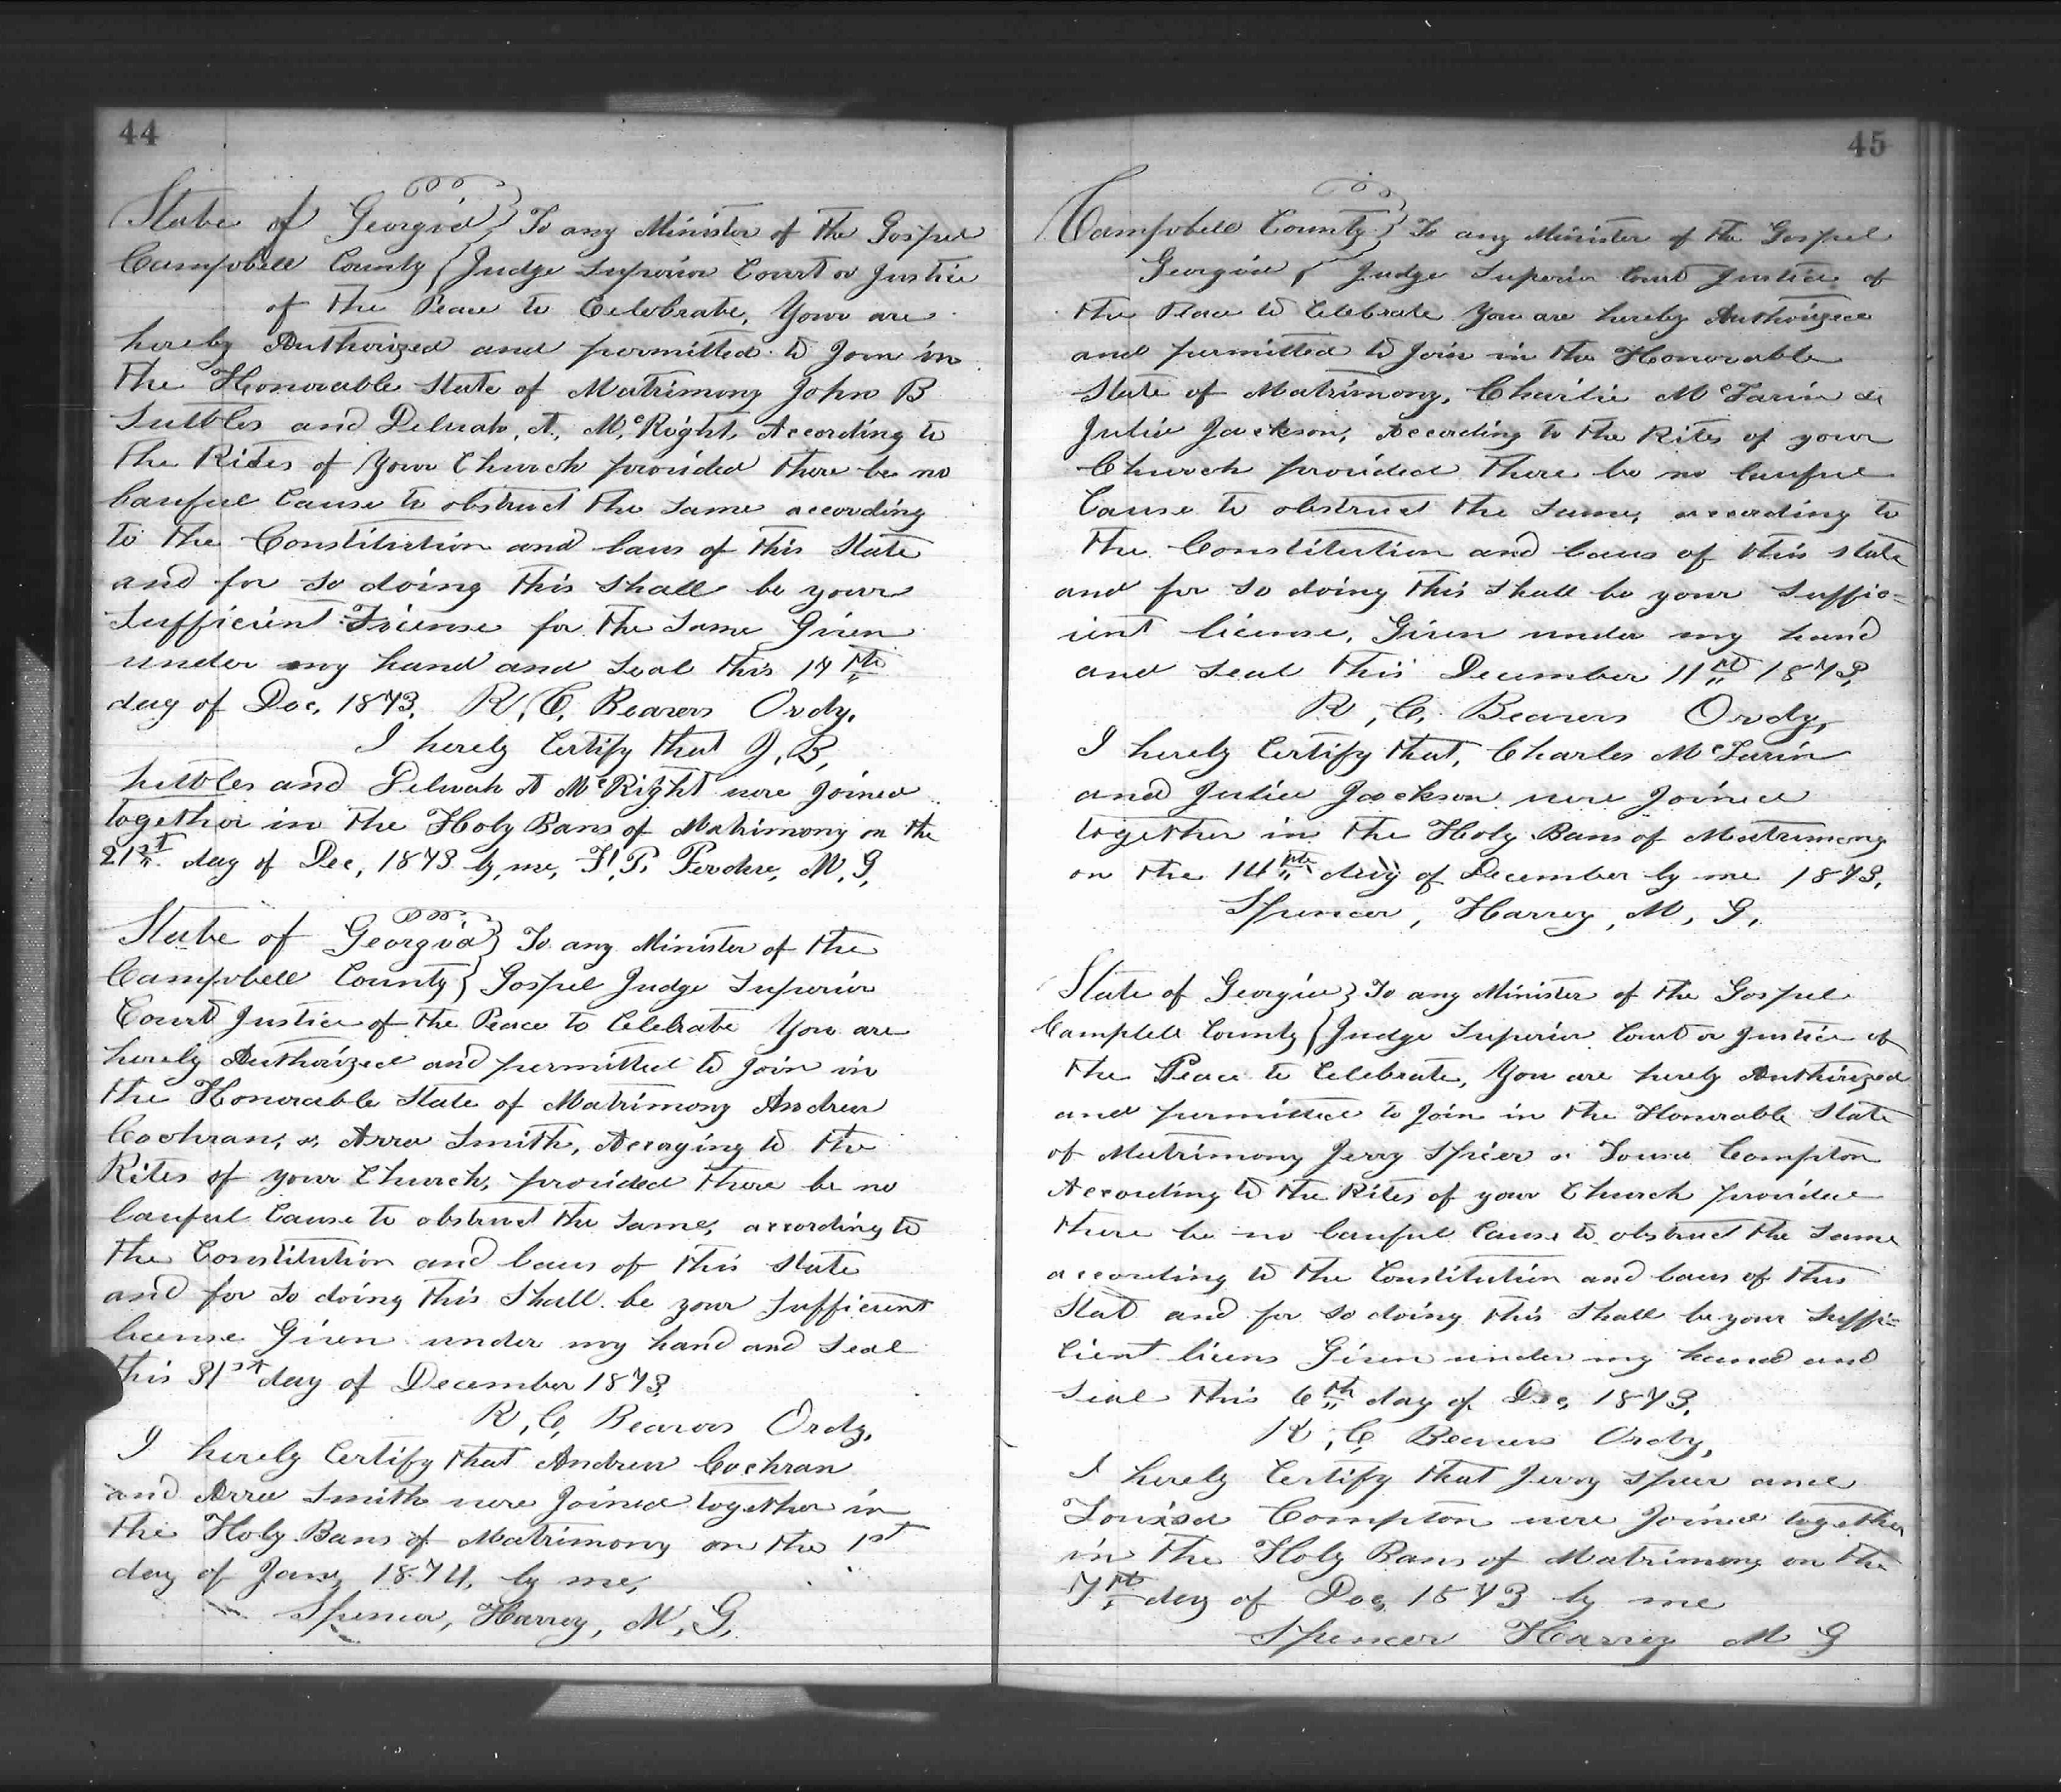 44
State of Georgia } To any Minister of the Gospel
Campbell County { Judge Superior Court or Justice
of the Peace to Celebrate, Your are
hereby Authorized and permitted to Join in
the Honorable State of Matrimony John B
Suttles and A. McRight, According to
the Rites of Your Church provided there be no
lawful Cause to obstruct the Same according
to the Constitution and laws of this State
and for So doing this Shall be your
Sufficient License for the Same Given
under my hand and Seal this 17th
day of Dec, 1873. R, C, Beavers Ordy.
I herely Certify that J, B,
Suttles and A McRight were Joined
together in the Holy Bans of Matrimony on the
21st day of Dec, 1873 by me, P. M, G,
State of Georgia } To any Minister of the
Campbell County } Gospel Judge Superior
Court Justice of the Peace to Celebrate You are
herely Authorized and permitted to Join in
the Honorable State of Matrimony Andrew
Cochran, & Arra Smith, Accoging to the
Rites of your Church, provided there be no
lawful Cause to obstruct the Same, according to
the Constitution and laws of this State
and for So doing this Shall be your Sufficient
license Given under my hand and Seal
this 31st day of December 1873
R, C, Beavers Ordy,
I herely Certify that Andrew Cochran
and Arra Smith were Joined together in
the Holy Bans of Matrimony on the 1st
day of Jany 1874, by me,
Spencer, Harrey, M, G,
45
Campbell County } To any Minister of the Gospel
Georgia { Judge Superior Court Justice of
the Peace to Celebrate You are hereby Authorized
and permitted to Join in the Honorable
State of Matrimony, Charlie McLarin &
Julia Jackson, According to the Rites of your
Church provided there be no lawful
Cause to obstruct the Same, according to
the Constitution and laws of this State
and for So doing this Shall be your Suffic=
ient license, Given under my hand
and Seal this December 11th 1873,
R, C, Beavers Ordy,
I herely Certify that, Charles McLarin
and Julia Jackson were Joined
together in the Holy Bans of Matrimony
on the 14th day of December by me 1873,
Spencer, Harrey, M, G,
State of Georgia } To any Minister of the Gospel
Campbell County { Judge Superior Court or Justice of
the Peace to Celebrate, You are herely Authirized
and permitted to Join in the Honorable State
of Matrimony Jerry Speer & Louisa Compton
According to the Rites of your Church provided
there be no lawful Cause to obstruct the Same
according to the Constitution and laws of this
Stat and for So doing this Shall be your Suffi=
cient licens Given under my hand and
Seal this 6th day of Dec, 1873,
R, C, Beavers Ordy,
I herely Certify that Jerry Speer and
Louisa Compton were Joined together
in the Holy Bans of Matrimony on the
7th day of Dec, 1873 by me
Spencer Harrey M G